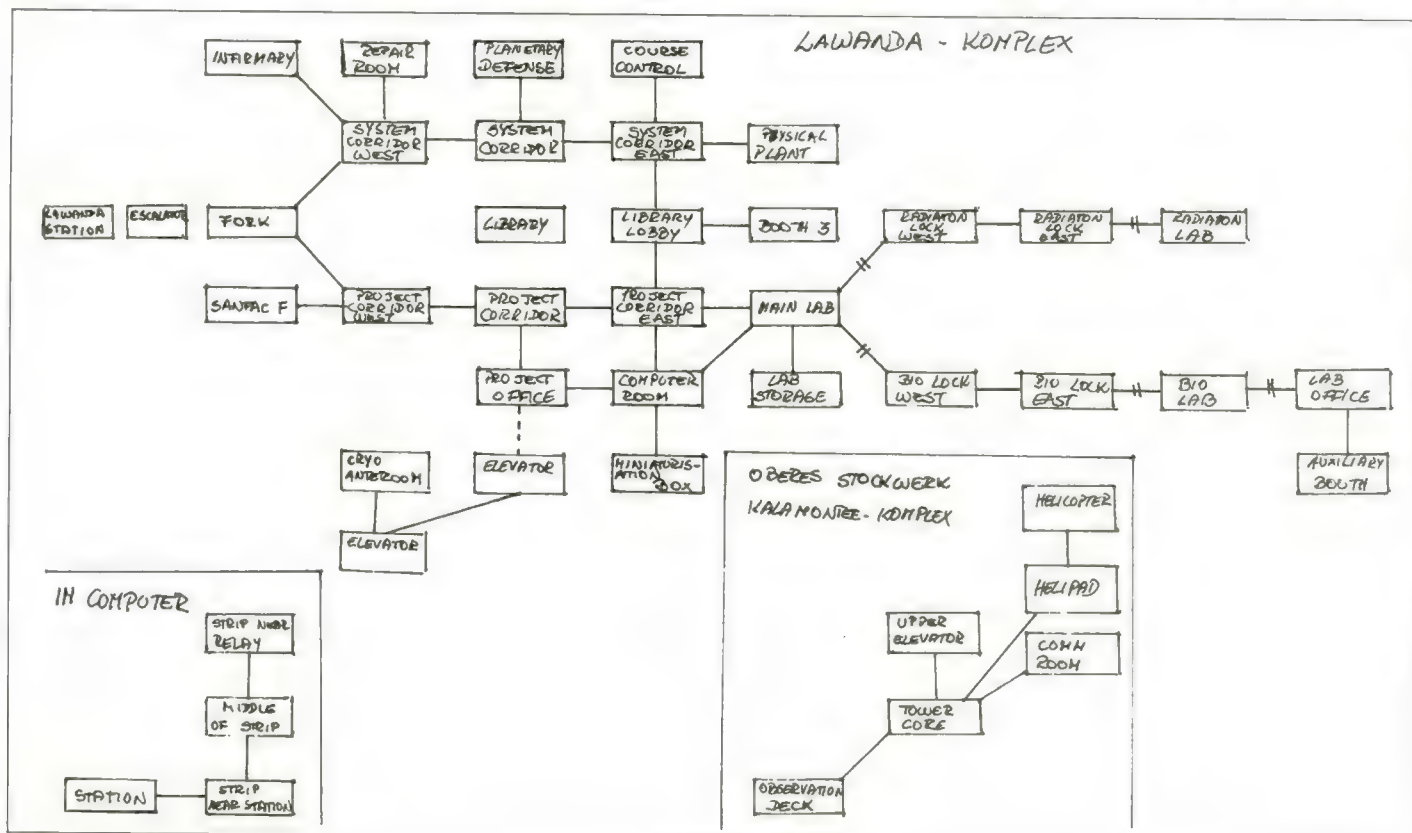 LAWANDA - KOMPLEX
INFIRMARY
REPAIR
ROOM
PLANETARY
DEFENSE
COURSE
CONTROL
SYSTEM
CORRIDOR
WEST
SYSTEM
CORRIDOR
SYSTEM
CORRIDOR
EAST
PHYSICAL
PLANT
LAWANDA
STATION
ESCALATOR
FORK
LIBRARY
LIBRARY
LOBBY
BOOTH 3
RADIATON
LOCK
WEST
RADIATON
LOCK
EAST
RADIATON
LAB
SANFAC F
PROJECT
CORRIDOR
WEST
PROJECT
CORRIDOR
PROJECT
CORRIDOR
EAST
MAIN LAB
PROJECT
OFFICE
COMPUTER
ROOM
LAB
STORAGE
BIO LOCK
WEST
BIO LOCK
EAST
BIO
LAB
LAB
OFFICE
CRYO
ANTEROOM
ELEVATOR
MINIATURIS-
ATION
BOX
AUXILIARY
BOOTH
ELEVATOR
IN COMPUTER
STRIP NEAR
RELAY
MIDDLE
OF STRIP
STATION
STRIP
NEAR STATION
OBERES STOCKWERK
KALAMONTEE-KOMPLEX
HELICOPTER
HELIPAD
UPPER
ELEVATOR
COMM
ROOM
TOWER
CORE
OBSERVATION
DECK